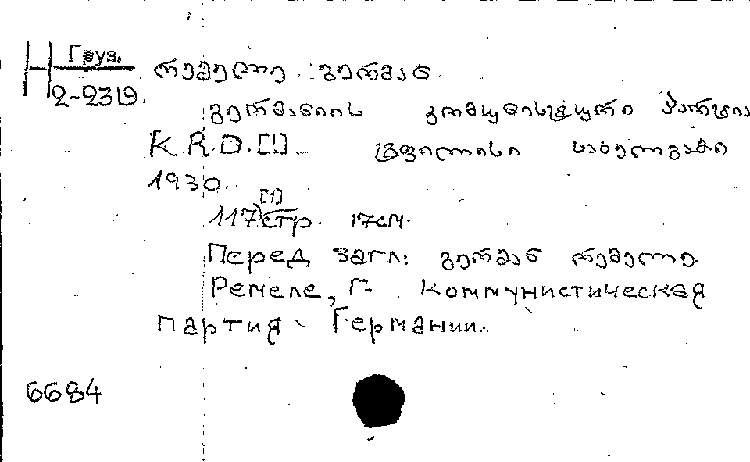 Н Груз.
2-2319
რემელე გერმან
გერმანიის კომუნისტური პარტია
K.R.D.[!]. ტფილისი სახელგამი
1930.
117[1] стр. 17см
Перед загл: გერმან რემელე
Ремеле, Г. Коммунистическая
партия Германии.
6684